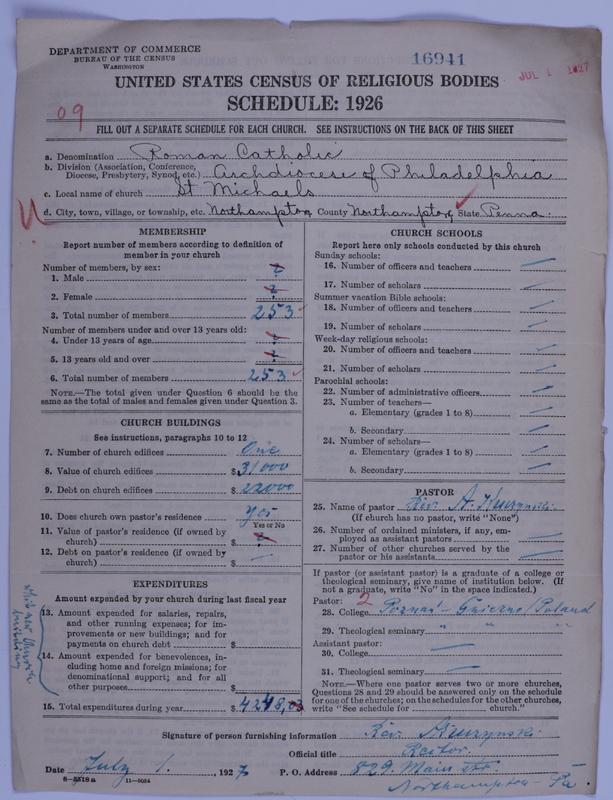 DEPARTMENT OF COMMERCE
BUREAU OF THE CENSUS
WASHINGTON
16941
JUL 1 1927
UNITED STATES CENSUS OF RELIGIOUS BODIES
SCHEDULE: 1926
09
FILL OUT A SEPARATE SCHEDULE FOR EACH CHURCH. SEE INSTRUCTIONS ON THE BACK OF THIS SHEET
a. Denomination Roman Catholic
b. Division (Association, Conference, Diocese, Presbytery, Synod, etc.) Archdiocese of Philadelphia
c. Local name of church St Michaels
d. City, town, village, or township, etc. Northampton County Northampton State Penna.
MEMBERSHIP
Report number of members according to definition of
member in your church
Number of members, by sex:
1. Male ?
2. Female ?
3. Total number of members 253
Number of members under and over 13 years old:
4. Under 13 years of age ?
5. 13 years old and over ?
6. Total number of members 253
NOTE.—The total given under Question 6 should be
the same as the total of males and females given under Question 3.
CHURCH BUILDINGS
See instructions, paragraphs 10 to 12
7. Number of church edifices One
8. Value of church edifices $ 31000
9. Debt on church edifices $ 22000
10. Does church own pastor's residence yes
Yes or No
11. Value of pastor's residence (if owned by
church) $ ?
12. Debt on pastor's residence (if owned by
church) $ —
EXPENDITURES
Amount expended by your church during last fiscal year
13. Amount expended for salaries, repairs,
and other running expenses; for im-
provements or new buildings; and for
payments on church debt $
14. Amount expended for benevolences,
including home and foreign missions; for
denominational support; and for all
other purposes $
15. Total expenditures during year $ 4248,
CHURCH SCHOOLS
Report here only schools conducted by this church
Sunday schools:
16. Number of officers and teachers —
17. Number of scholars —
Summer vacation Bible schools:
18. Number of officers and teachers —
19. Number of scholars —
Week-day religious schools:
20. Number of officers and teachers —
21. Number of scholars —
Parochial schools:
22. Number of administrative officers —
23. Number of teachers—
a. Elementary (grades 1 to 8) —
b. Secondary —
24. Number of scholars—
a. Elementary (grades 1 to 8) —
b. Secondary —
PASTOR
25. Name of pastor Rev. A.
(If church has no pastor, write "None")
26. Number of ordained ministers, if any, em-
ployed as assistant pastors —
27. Number of other churches served by the
pastor or his assistants —
If pastor (or assistant pastor) is a graduate of a college or
theological seminary, give name of institution below. (If
not a graduate, write "No" in the space indicated.)
Pastor: 2
28. College Poznań - Gniezno/Poland
29. Theological seminary " " "
Assistant pastor:
30. College —
31. Theological seminary —
NOTE.—Where one pastor serves two or more churches,
Questions 28 and 29 should be answered only on the schedule
for one of the churches; on the schedules for the other churches,
write "See schedule for ________ church."
Signature of person furnishing information Rev.
Official title Rector
Date July 1. 1927 P. O. Address 829 Main str
8—5518a 11—9034
Northampton - Pa.